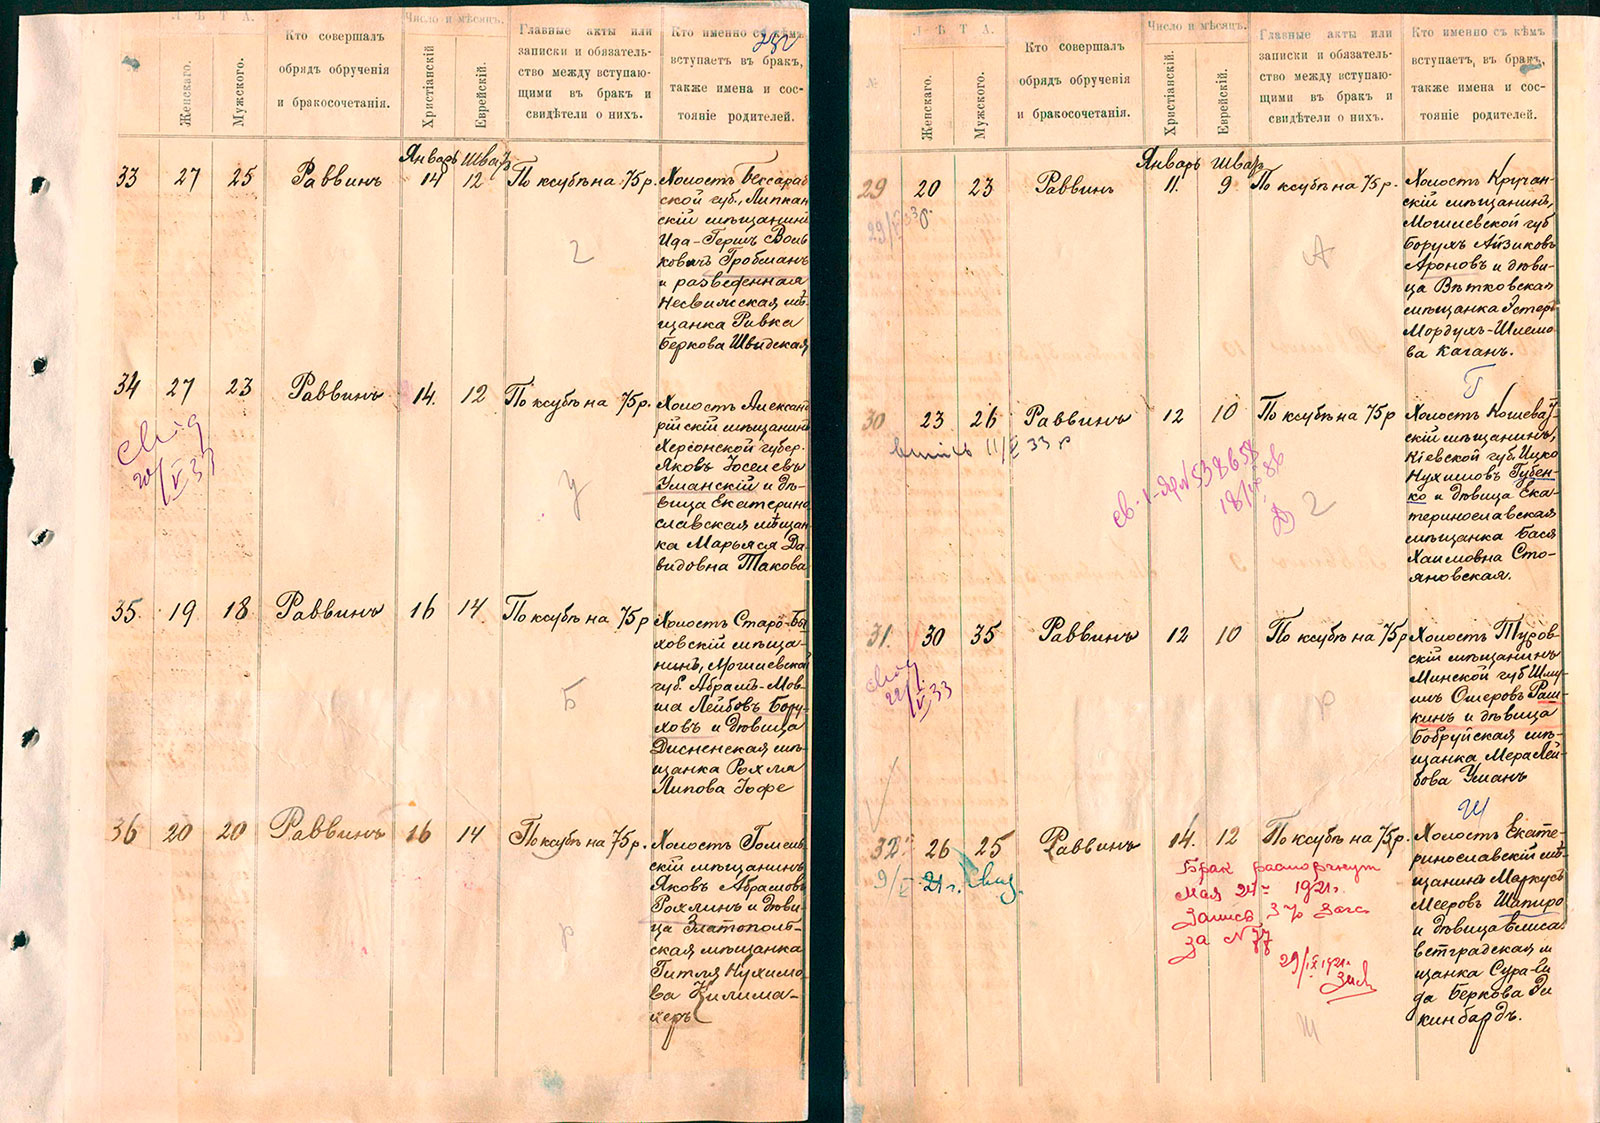 Л Ѣ Т А.
Женскаго.
Мужского.
Кто совершалъ
обрядъ обрученія
и бракосочетанія.
Число и мѣсяцъ.
Христіанскій
Еврейскій.
Главные акты или
записки и обязатель-
ство между вступаю-
щими въ бракъ и
свидѣтели о нихъ.
Кто именно съ кѣмъ
вступаетъ въ бракъ,
также имена и сос-
тояніе родителей.
Январь Шватъ
33 27 25 Раввинъ 14 12 По ксубѣ на 75 р.
Холостъ Бессараб
ской губ., Липкан
скій мѣщанинъ
Ида-Гершъ Воль
ковичъ Гробманъ
и разведенная
Несвижская мѣ-
щанка Ривка
Беркова Швидская
2
34 27 23 Раввинъ 14. 12 По ксубѣ на 75 р.
Холостъ Александ
рійскій мѣщанинъ
Херсонской губер.
Яковъ Іоселевъ
Уманскій и дѣ-
вица Екатерино
славская мѣщан
ка Марьяся Да-
видовна Такова
У
35. 19 18 Раввинъ 16 14 По ксубѣ на 75 р
Холостъ Старо-Бы
ховскій мѣща-
нинъ, Могилевской
губ. Абрамъ-Мов-
ша Лейбовъ Бору-
ховъ и дѣвица
Дисненская мѣ-
щанка Рохля
Липова Іофе
Б
36 20 20 Раввинъ 16 14 По ксубѣ на 75 р.
Холостъ Гомель-
скій мѣщанинъ
Яковъ Абрамовъ
Рохлинъ и дѣви-
ца Златополь-
ская мѣщанка
Гитля Нухимо-
ва Килима-
Р
№
Л Ѣ Т А.
Женскаго.
Мужского.
Кто совершалъ
обрядъ обрученія
и бракосочетанія.
Число и мѣсяцъ.
Христіанскій
Еврейскій.
Главные акты или
записки и обязатель-
ство между вступаю-
щими въ бракъ и
свидѣтели о нихъ.
Кто именно съ кѣмъ
вступаетъ въ бракъ,
также имена и сос-
тояніе родителей.
Январь Шватъ
29 20 23 Раввинъ 11. 9 По ксубѣ на 75 р.
Холостъ Кручан-
скій мѣщанинъ,
Могилевской губ
Борухъ Айзиковъ
Ароновъ и дѣви-
ца Вѣтковская
мѣщанка Эстеръ
Мордухъ-Шлемо-
ва Каганъ.
А
Г
30 23 26 Раввинъ 12 10 По ксубѣ на 75 р
11/V 33 р
18/
Холостъ Кошева
скій мѣщанинъ,
Кіевской губ. Ицко
Нухимовъ Губен-
ко и дѣвица Ека-
теринославская
мѣщанка Бася
Хаимовна Сто-
яновская.
2
31. 30 35 Раввинъ 12 10 По ксубѣ на 75 р
Холостъ Туров-
скій мѣщанинъ
Минской губ Шму
иль Омеровъ Раш
кинъ и дѣвица
Бобруйская мѣ-
щанка Мера Лей-
бова Уманъ
Р
Ш
32 26 25 Раввинъ 14. 12 По ксубѣ на 75 р.
9/V 21 г.
Брак расторгнут
Мая 24 1921 г.
Запись
за № 77
29/IX 1921 г.
Холостъ Екате-
ринославскій мѣ
щанинъ Маркусъ
Мееровъ Шапиро
и дѣвица Елиса
ветградская м
щанка Сура-Ви
да Беркова Эй
кинбардъ.
Ш